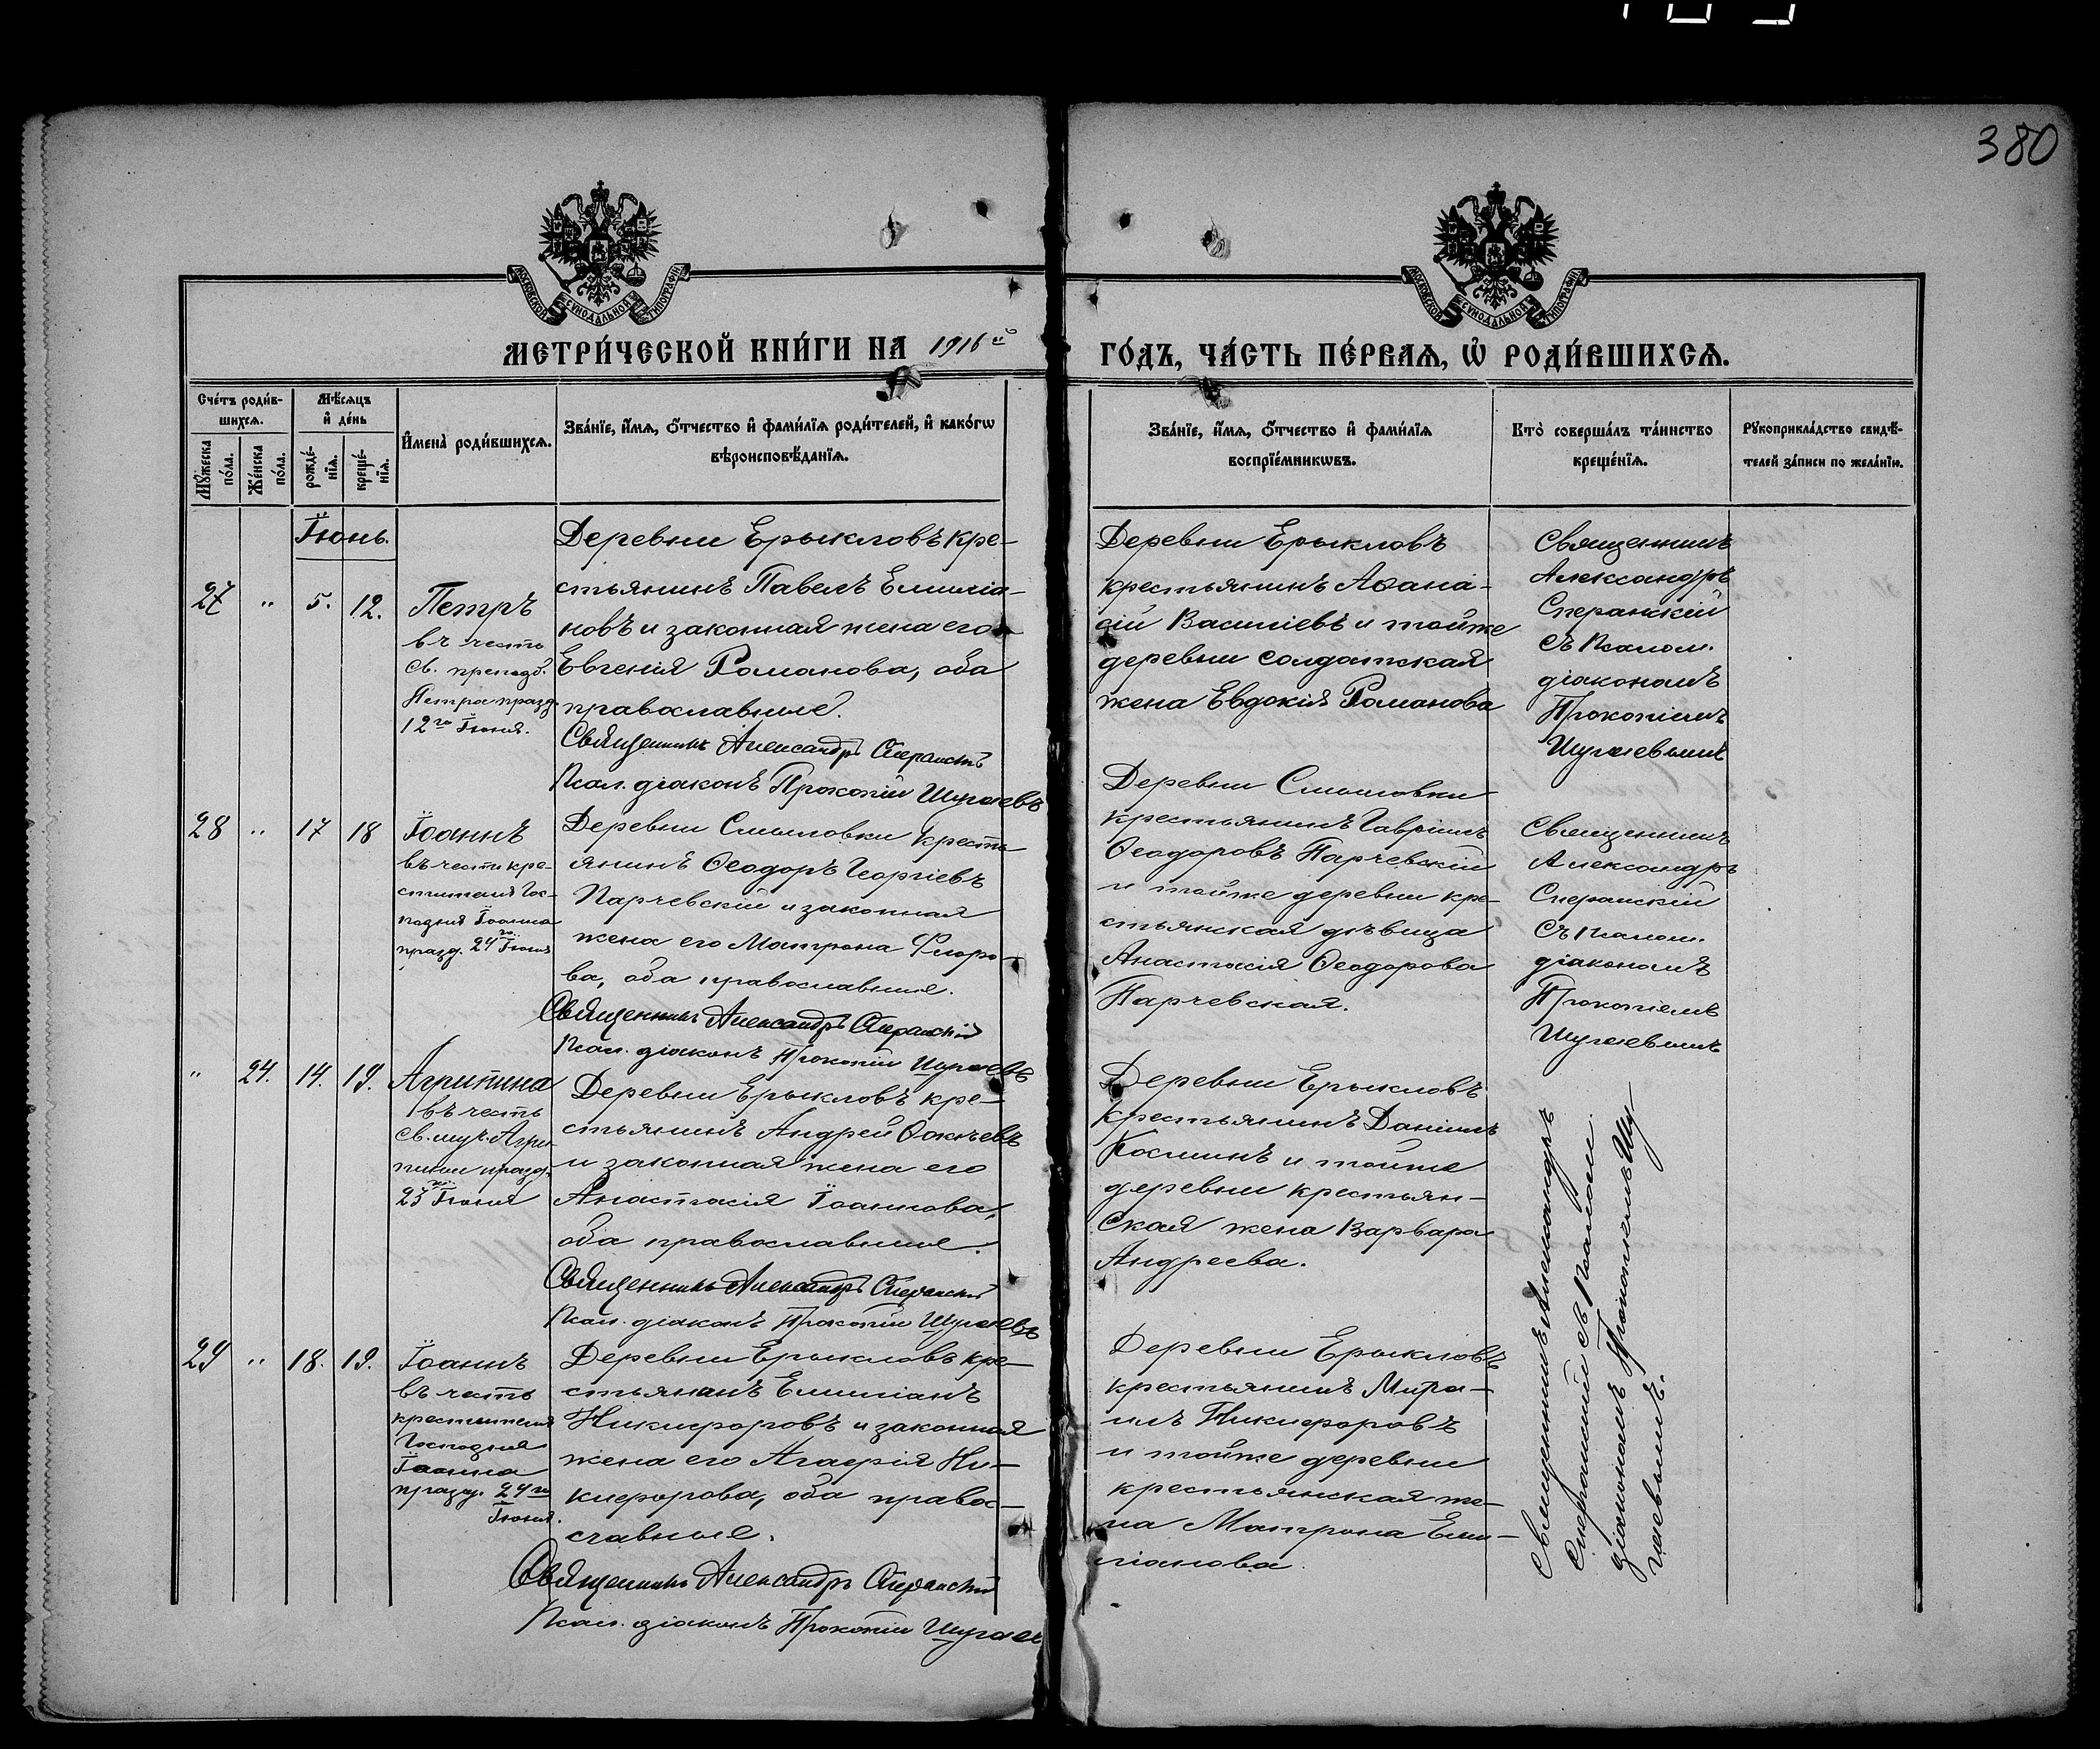 380
МОСКОВСКОЙ СѴНОДАЛЬНОЙ ТИПОГРАФІИ
МОСКОВСКОЙ СѴНОДАЛЬНОЙ ТИПОГРАФІИ
МЕТРИ́ЧЕСКОЙ КНИ́ГИ НА 1916й
ГО́ДЪ, ЧА́СТЬ ПЕ́РВАѦ, Ѡ РОДИ́ВШИХСѦ.
Сче́тъ роди́в-
шихсѧ.
Мѣ́сѧцъ
и де́нь
Мꙋ́жеска
по́ла.
Же́нска
по́ла.
рожде́-
нїѧ.
креще́-
нїѧ.
Имена̀ роди́вшихсѧ.
Зва́нїе, и́мѧ, ѻ́тчество и фами́лїѧ роди́телей, и како́гѡ
вѣроисповѣ́данїѧ.
Зва́нїе, и́мѧ, ѻ́тчество и фами́лїѧ
воспрїе́мникѡвъ.
Кто̀ соверша́лъ та́инство
креще́нїѧ.
Рꙋкоприкла́дство свидѣ́-
телей за́писи по жела́нїю.
Іюнь.
27 " 5. 12.
Петръ
въ честь
св. преподб.
Петра празд.
12го Іюня.
Деревни Ерыкловъ кре-
стьянинъ Павелъ Емилiа-
новъ и законная жена его
Евгенія Романова, оба
православные.
Священникъ Александръ Сперанскій
Псал. діаконъ Прокопій Шугаевъ
Деревни Ерыкловъ
крестьянинъ Аѳана-
сій Василіевъ и тойже
деревни солдатская
жена Евдокія Романова
Священникъ
Александръ
Сперанскій
съ Псалом.
діакономъ
Прокопіемъ
Шугаевымъ
28 " 17 18
Іоаннъ
въ честь кре-
стителя Гос-
подня Іоанна
празд. 24го Іюня
Деревни Смыловки кресть
янинъ Ѳеодоръ Георгіевъ
Парчевскій и законная
жена его Матрона Флоро-
ва, оба православные.
Священникъ Александръ Сперанскій
Псал. діаконъ Прокопій Шугаевъ
Деревни Смыловки
крестьянинъ Гавріилъ
Ѳеодоровъ Парчевскій
и тойже деревни кре-
стьянская дѣвица
Анастасія Ѳеодорова
Парчевская.
Священникъ
Александръ
Сперанскій
Съ Псалом.
діакономъ
Прокопіемъ
Шугаевымъ
" 24. 14. 19.
Агрипина
въ честь
св. муч. Агри-
пины празд.
23го Іюня
Деревни Ерыкловъ кре-
стьянинъ Андрей Ѳокѣевъ
и законная жена его
Анастасія Іоаннова,
оба православные.
Священникъ Александръ Сперанскій
Псал. діаконъ Прокопій Шугаевъ
Деревни Ерыкловъ
крестьянинъ Даніилъ
Косминъ и тойже
деревни крестьян-
ская жена Варвара
Андреева.
29 " 18. 19.
Іоаннъ
въ честь
крестителя
Господня
Іоанна
празд. 24го
Іюня.
Деревни Ерыкловъ кре-
стьянинъ Емиліанъ
Никифоровъ и законная
жена его Агафія Ни-
кифорова, оба правос-
славные.
Священникъ Александръ Сперанскій
Псал. діаконъ Прокопій Шугаев
Деревни Ерыкловъ
крестьянинъ
Никифоровъ
и тойже деревни
крестьянская же-
на Матрона Еми-
ліанова.
Священникъ Александръ
Сперанскій съ Псалом.
діакономъ Прокопіемъ Шу-
гаевымъ.